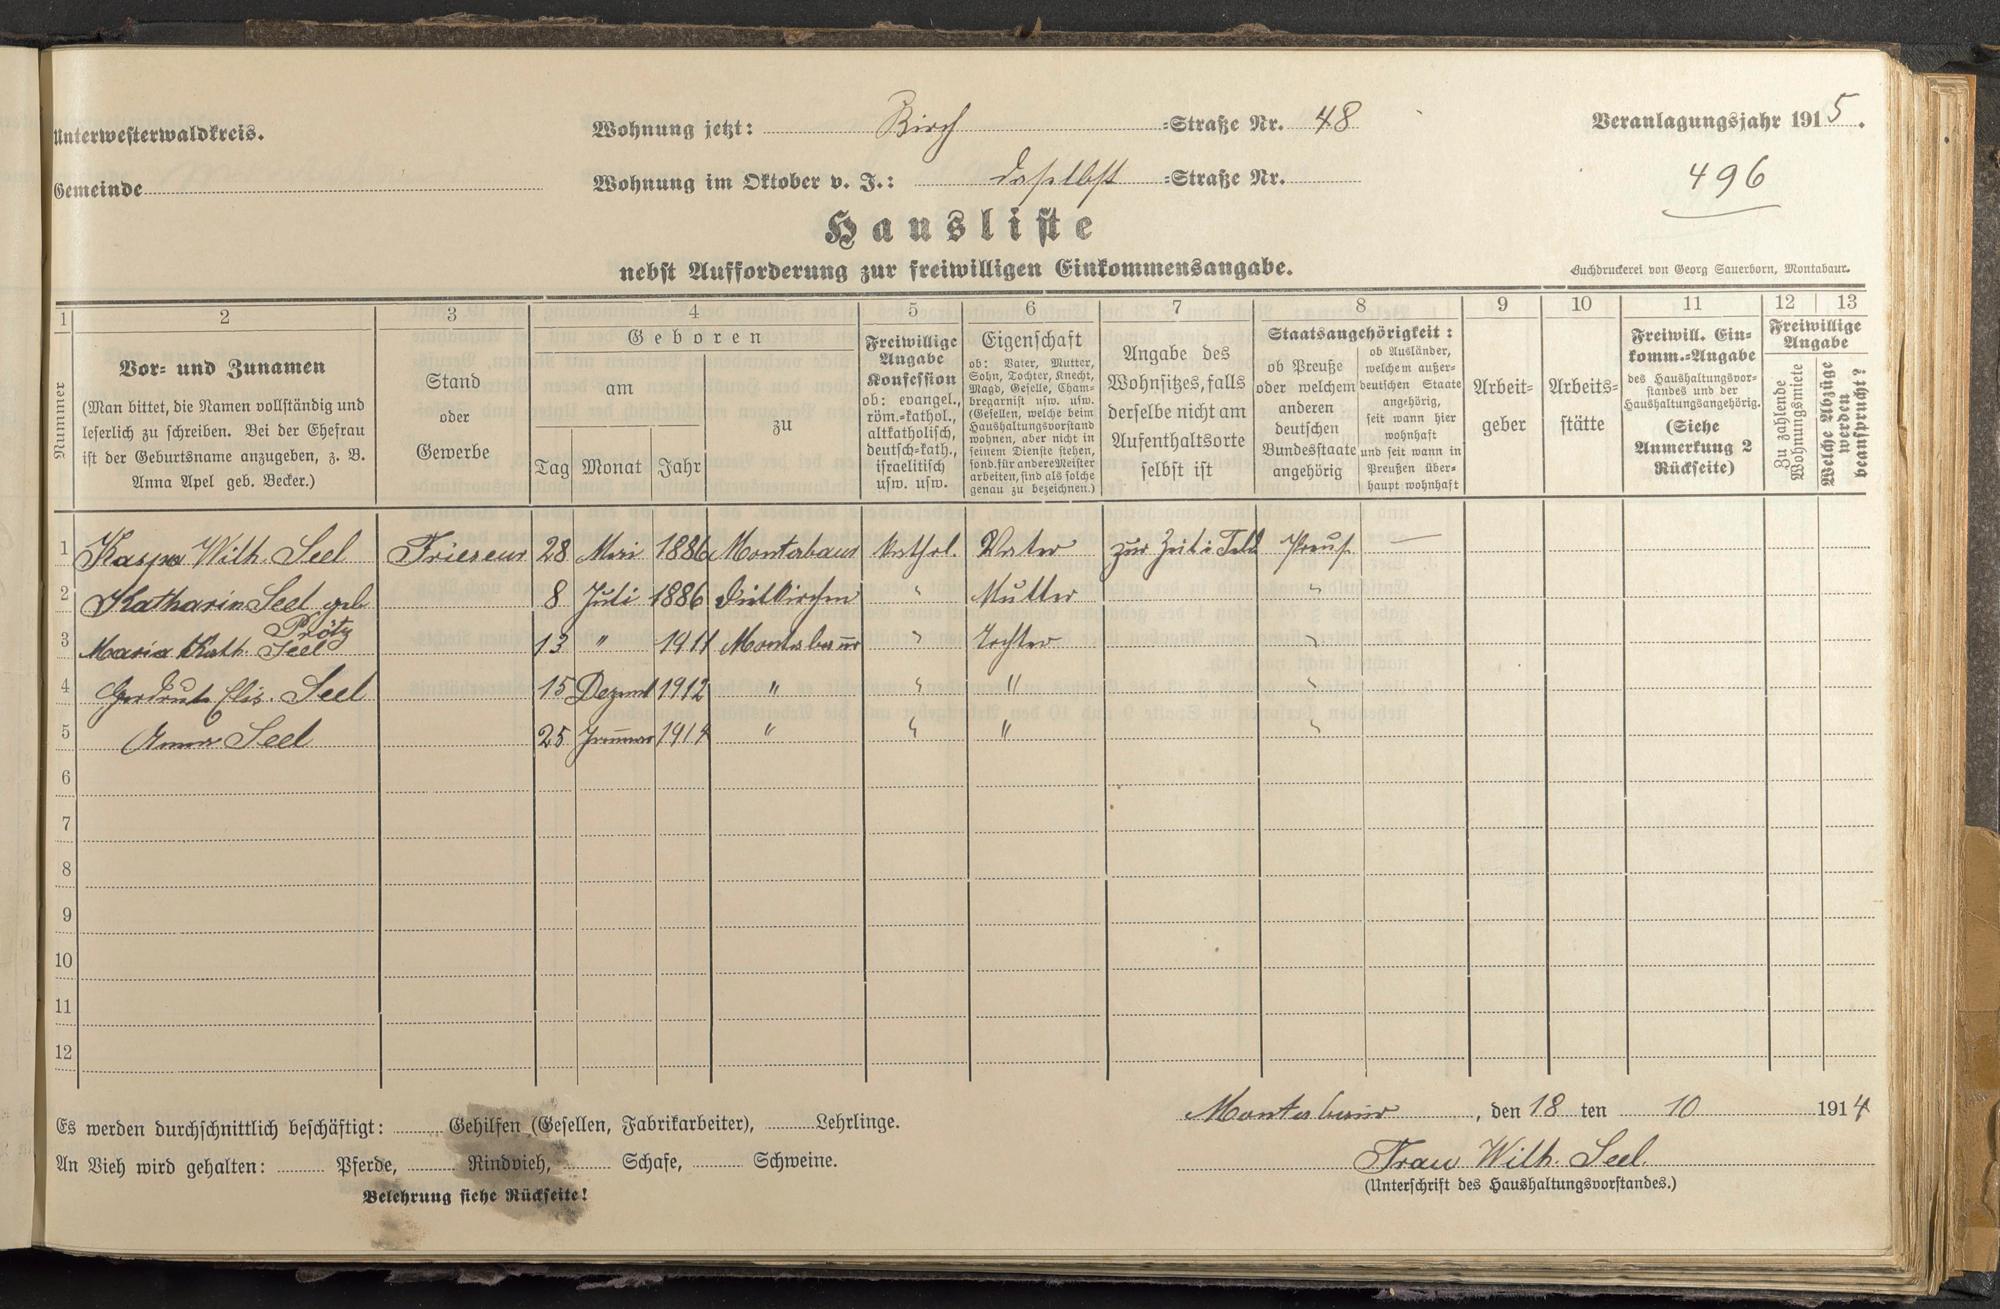 Unterwesterwaldkreis. Wohnung jetzt: Birch =Straße Nr. 48 Veranlagungsjahr 1915.
Gemeinde Wohnung im Oktober v. J.: daselbst =Straße Nr. 496
Hausliste
nebst Aufforderung zur freiwilligen Einkommensangabe.
Buchdruckerei von Georg Sauerborn, Montabaur.
1 2 3 4 5 6 7 8 9 10 11 12 13
Nummer
Vor= und Zunamen
(Man bittet, die Namen vollständig und
leserlich zu schreiben. Bei der Ehefrau
ist der Geburtsname anzugeben, z. B.
Anna Apel geb. Becker.)
Stand
oder
Gewerbe
Geboren
am
zu
Tag Monat Jahr
Freiwillige
Angabe
Konfession
ob: evangel.,
röm.=kathol.,
altkatholisch,
deutsch=kath.,
israelitisch
usw. usw.
Eigenschaft
ob: Vater, Mutter,
Sohn, Tochter, Knecht,
Magd, Geselle, Cham-
bregarnist usw. usw.
(Gesellen, welche beim
Haushaltungsvorstand
wohnen, aber nicht in
seinem Dienste stehen,
sond. für andere Meister
arbeiten, sind als solche
genau zu bezeichnen.)
Angabe des
Wohnsitzes, falls
derselbe nicht am
Aufenthaltsorte
selbst ist
Staatsangehörigkeit:
ob Preuße
oder welchem
anderen
deutschen
Bundesstaate
angehörig
ob Ausländer,
welchem außer-
deutschen Staate
angehörig,
seit wann hier
wohnhaft
und seit wann in
Preußen über-
haupt wohnhaft
Arbeit-
geber
Arbeits-
stätte
Freiwill. Ein-
komm.=Angabe
des Haushaltungsvor-
standes und der
Haushaltungsangehörig.
(Siehe
Anmerkung 2
Rückseite)
Freiwillige
Angabe
Zu zahlende
Wohnungsmiete
Welche Abzüge
werden
beansprucht?
1 Kaspar Wilh. Seel Friseur 28 Mai 1886 Montabaur kathol. Vater zur Zeit i Feld Preuß. —
2 Katharina Seel geb. Prötz 8 Juli 1886 Dietkirchen " Mutter "
3 Maria Kath. Seel 13 " 1911 Montabaur " Tochter "
4 Gertrude Elis. Seel 15 Dezemb 1912 " " " "
5 Anna Seel 25 Januar 1914 " " " "
6
7
8
9
10
11
12
Es werden durchschnittlich beschäftigt: Gehilfen (Gesellen, Fabrikarbeiter), Lehrlinge.
An Vieh wird gehalten: Pferde, Rindvieh, Schafe, Schweine.
Belehrung siehe Rückseite!
Montabaur, den 18 ten 10 1914
Frau Wilh. Seel.
(Unterschrift des Haushaltungsvorstandes.)